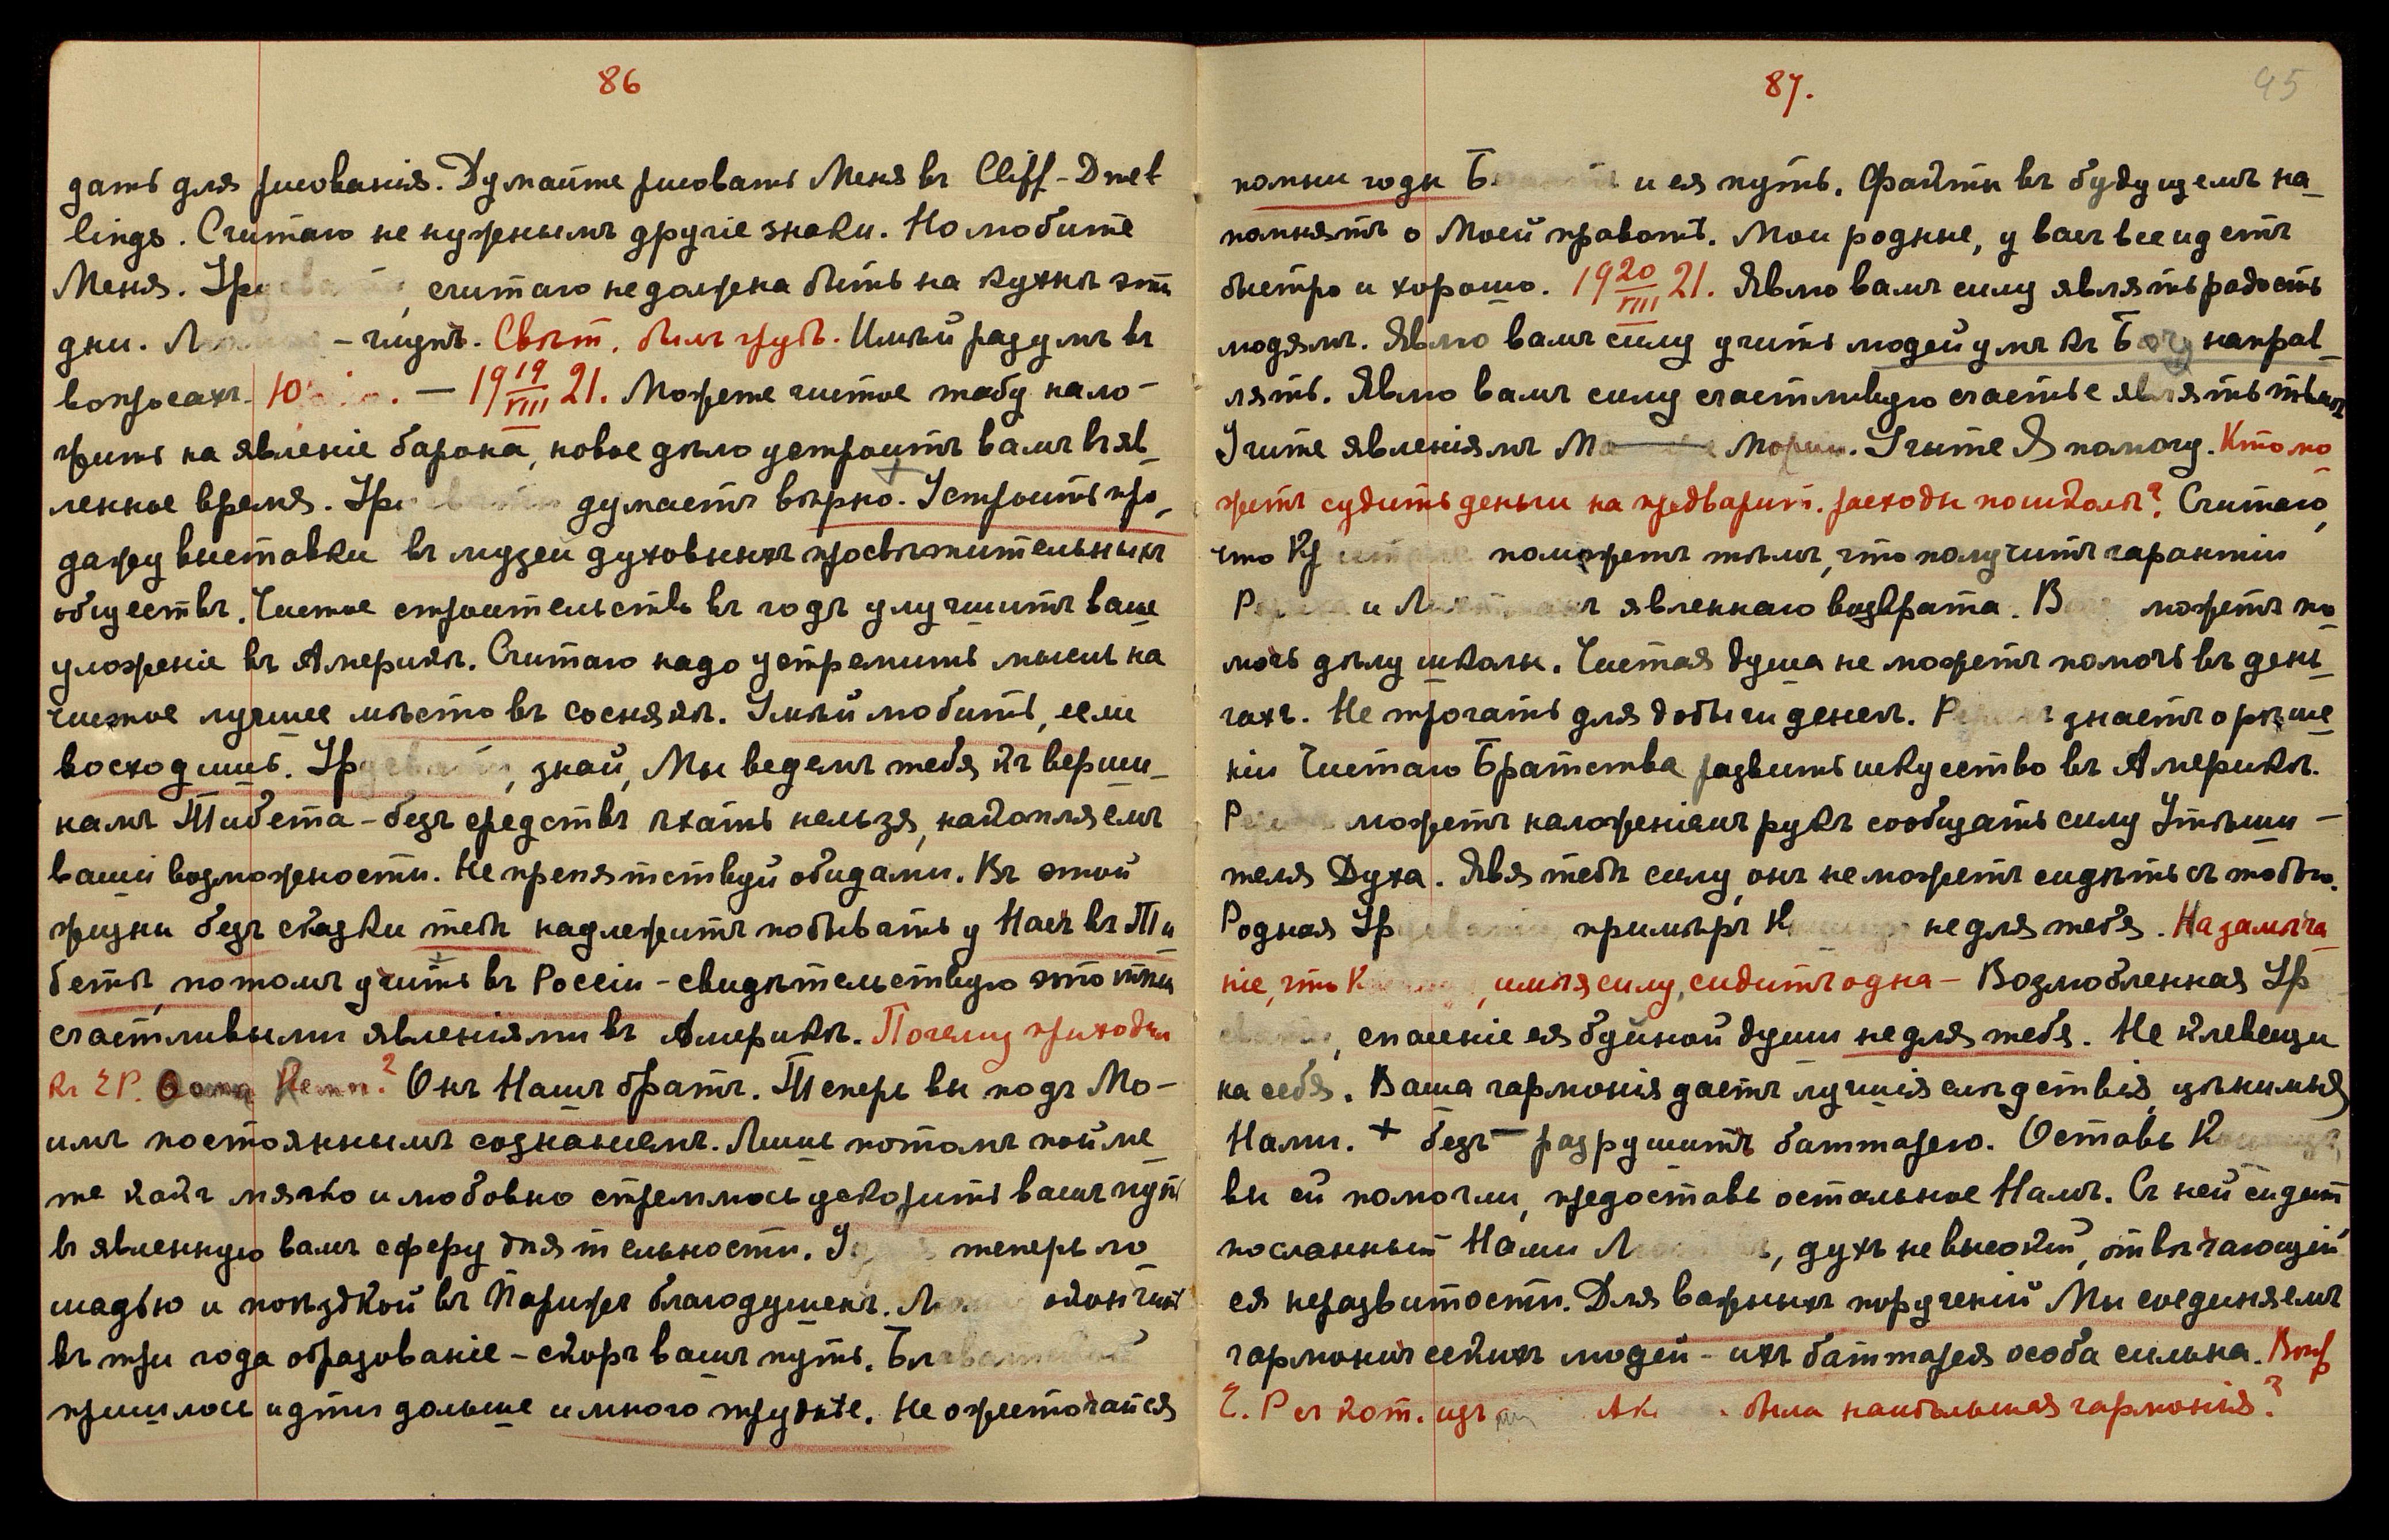 86
дать для рисованія. Думайте рисовать Меня въ Cliff-Dwel
lings. Считаю не нужнымъ другіе знаки. Но любите
Меня. считаю не должна быть на кухнѣ эти
дни. – глупъ. Свѣт. былъ грубъ. Имѣй разумъ въ
вопросахъ. — 19 19/VIII 21. Можете чистое табу нало-
жить на явленіе барона, новое дѣло устроитъ вамъ въ яв_
ленное время. думаетъ вѣрно. Устроить про_
дажу выставки въ музеи духовныхъ просвѣтительныхъ
обществъ. Чистое строительство въ годъ улучшитъ ваше
уложеніе въ Америкѣ. Считаю надо устремить мысль на
чистое лучшее мѣсто въ соснякѣ. Умѣй любить, если
восходишь. знай, Мы ведемъ тебя къ верши_
намъ Тибета – безъ средствъ ѣхать нельзя, накопляемъ
ваши возможности. Не препятствуй обидами. Въ этой
жизни безъ сказки тебѣ надлежитъ побывать у Насъ въ Ти
бетѣ, потомъ учить въ Россіи – свидѣтельствую это
счастливыми явленіями въ Америкѣ. Почему приходил
къ Е.Р. Онъ Нашъ братъ. Теперь вы подъ Мо-
имъ постояннымъ сознаніемъ. Лишь потомъ пойме_
те какъ мягко и любовно стремлюсь ускорить вашъ путь
въ явленную вамъ сферу дѣятельности. теперь ло
шадью и поѣздкой въ Парижъ благодушенъ. окончит
въ три года образованіе – скоръ вашъ путь.
пришлось идти дольше и много труднѣе. Не ожесточайся
87. 95
помни годы и ея путь. Факты въ будущемъ на_
помнятъ о Моей правотѣ. Мои родные, у васъ все идетъ
быстро и хорошо. 19 20/VIII 21. Являю вамъ силу являть радость
людямъ. Являю вамъ силу учить людей умъ къ Богу направ_
лять. Являю вамъ силу счастливую счастье являть тьмѣ
Учите явленіямъ Моріи. Учите Я помогу. Кто мо
жетъ судить деньги на предварит. расходы по школѣ? Считаю,
что поможетъ тѣмъ, что получитъ гарантіи
и явленнаго возврата. можетъ по
мочь дѣлу школы. Чистая душа не можетъ помочь въ день_
гахъ. Не трогать для добычи денегъ. знаетъ о рѣше
ніи Чистаго Братства развить искусство въ Америкѣ.
можетъ наложеніемъ рукъ сообщать силу Утѣши-
теля Духа. Явя тебѣ силу, онъ не можетъ сидѣть съ тобою.
Родная примѣръ не для тебя. На замѣча_
ніе, что имѣя силу, сидитъ одна – Возлюбленная Ур
спасеніе ея буйной души не для тебя. Не клевещи
на себя. Ваша гармонія даетъ лучшія слѣдствія, цѣнимыя
Нами. + безъ – разрушитъ баттарею. Оставь
вы ей помогли, предоставь остальное Намъ. Съ ней сидит
посланный Нами духъ невысокій, отвѣчающій
ея неразвитости. Для важныхъ порученій Мы соединяемъ
гармоническихъ людей – ихъ баттарея особа сильна. Вопр
Е. Р съ кот. изъ была наибольшая гармонія?